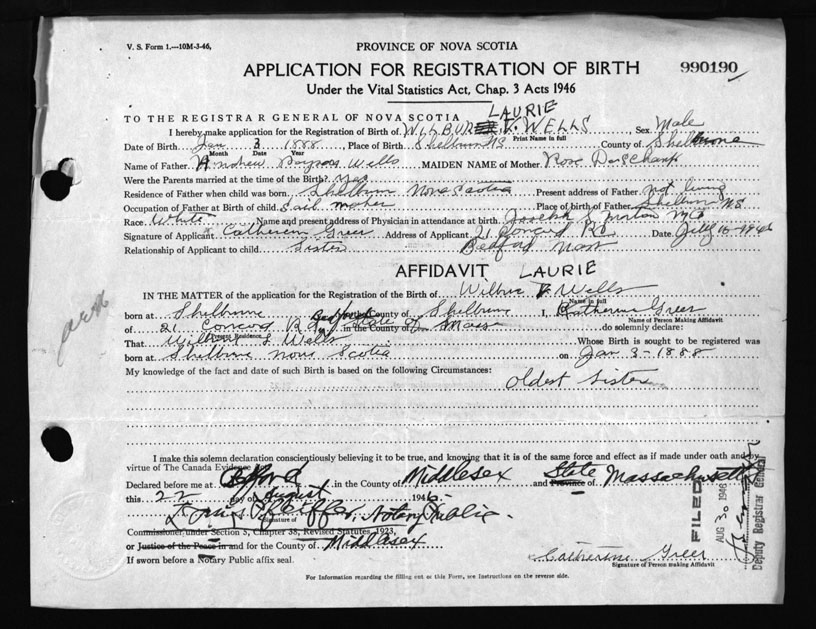 V. S. Form 1.—10M-3-46,
PROVINCE OF NOVA SCOTIA
APPLICATION FOR REGISTRATION OF BIRTH
990190
Under the Vital Statistics Act, Chap. 3 Acts 1946
LAURIE
TO THE REGISTRAR GENERAL OF NOVA SCOTIA
I hereby make application for the Registration of Birth of WILBUR L. WELLS Sex Male
Print Name in full
Date of Birth Jan 3 1888 Place of Birth Shelburn NS County of Shelburne
Month Date Year
Name of Father Andrew Wells MAIDEN NAME of Mother Rose
Were the Parents married at the time of the Birth? yes
Residence of Father when child was born Shelburn Nova Scotia Present address of Father not living
Occupation of Father at Birth of child Sail maker Place of birth of Father Shelburn N.S.
Race White Name and present address of Physician in attendance at birth Joseph
Signature of Applicant Catherine Greer Address of Applicant 21 Concord Rd. Date July 16-1946
Relationship of Applicant to child Sister Bedford Mass
AFFIDAVIT LAURIE
IN THE MATTER of the application for the Registration of the Birth of Wilbur Wells
Name in full
born at Shelburne County of Shelburn I, Catherine Greer
Name of Person Making Affidavit
of 21 Concord Rd in the County of State of Mass do solemnly declare:
Present Residence
That Wilbur L Wells Whose Birth is sought to be registered was
born at Shelburne Nova Scotia on Jan 3-1888
My knowledge of the fact and date of such Birth is based on the following Circumstances:
Oldest Sister
I make this solemn declaration conscientiously believing it to be true, and knowing that it is of the same force and effect as if made under oath and by
virtue of The Canada Evidence Act.
Declared before me at Bedford in the County of Middlesex and Province of State Massachusetts
this 22 day of August 1946.
Louis Pfeiffer, Notary Public.
Signature of
Commissioner under Section 5, Chapter 38, Revised Statutes, 1923,
or Justice of the Peace in and for the County of Middlesex
If sworn before a Notary Public affix seal.
Catherine Greer
Signature of Person making Affidavit
FILED
AUG 30 1946
Deputy Registrar General
For Information regarding the filling out of this Form, see Instructions on the reverse side.